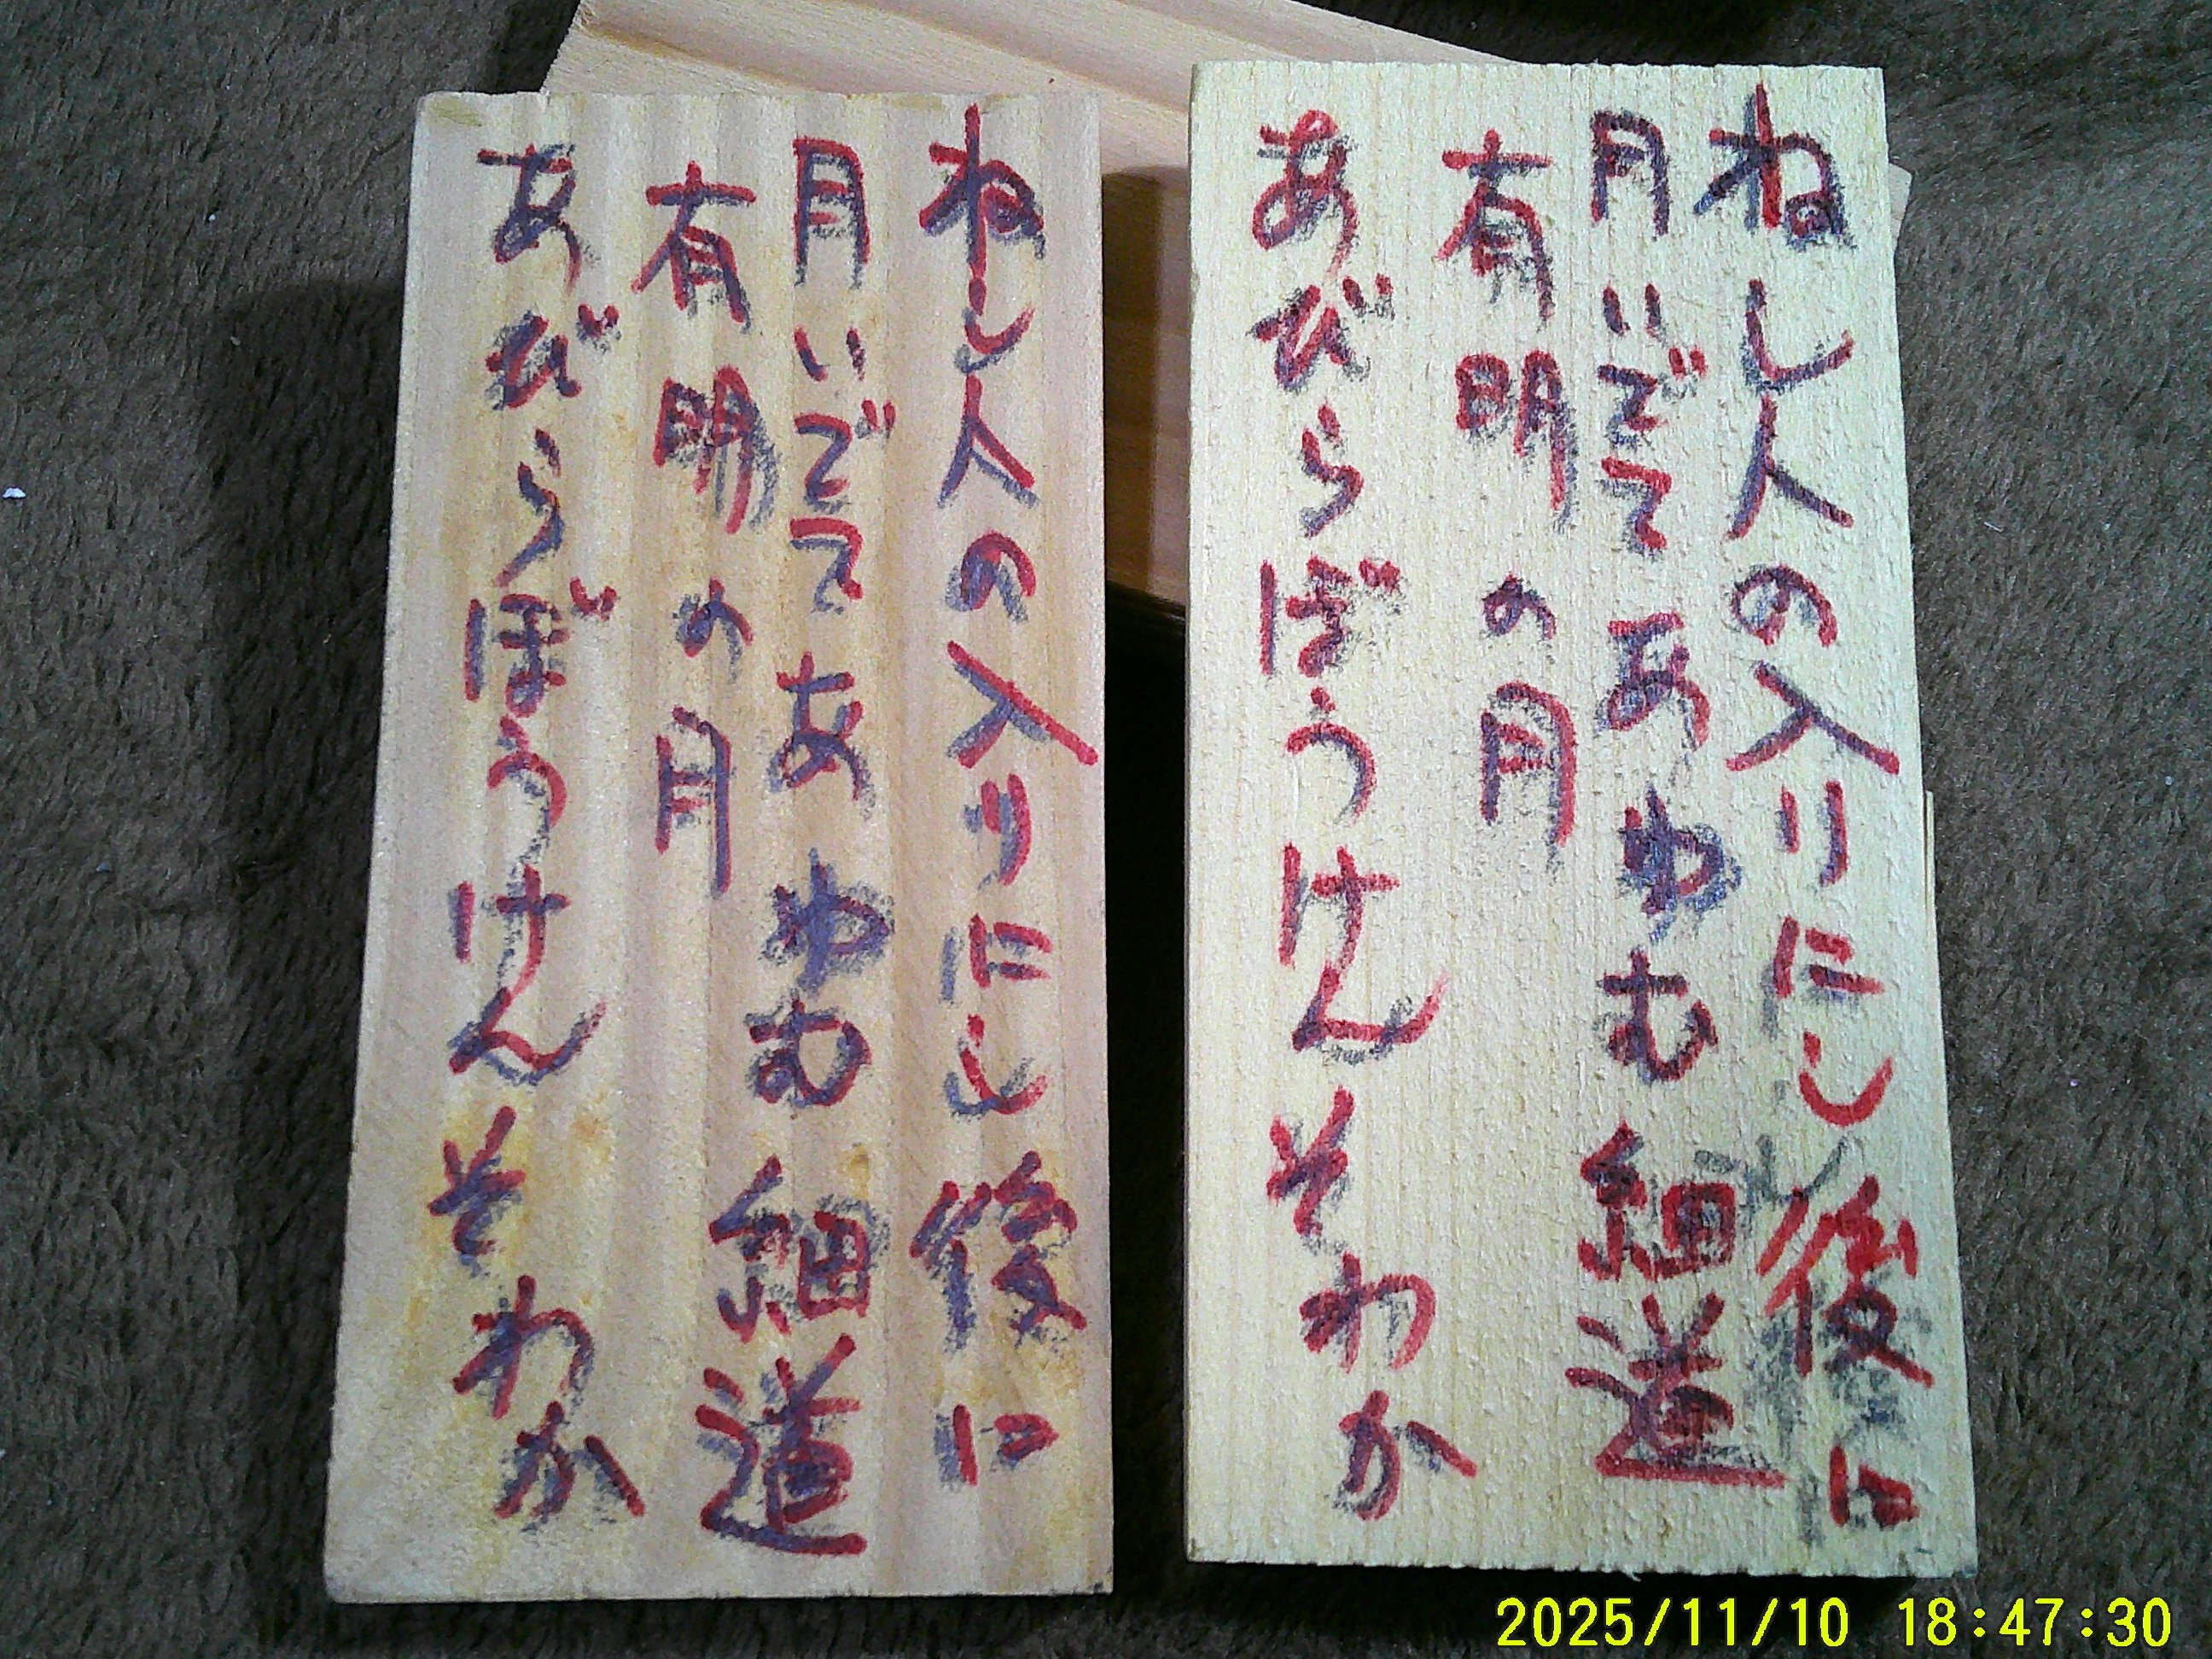 ねし人の入りにし後に
月いでてあゆむ細道
有明の月
あびらぼうけんそわか
ねし人の入りにし後に
月いでてあゆむ細道
有明の月
あびらぼうけんそわか
2025/11/10 18:47:30